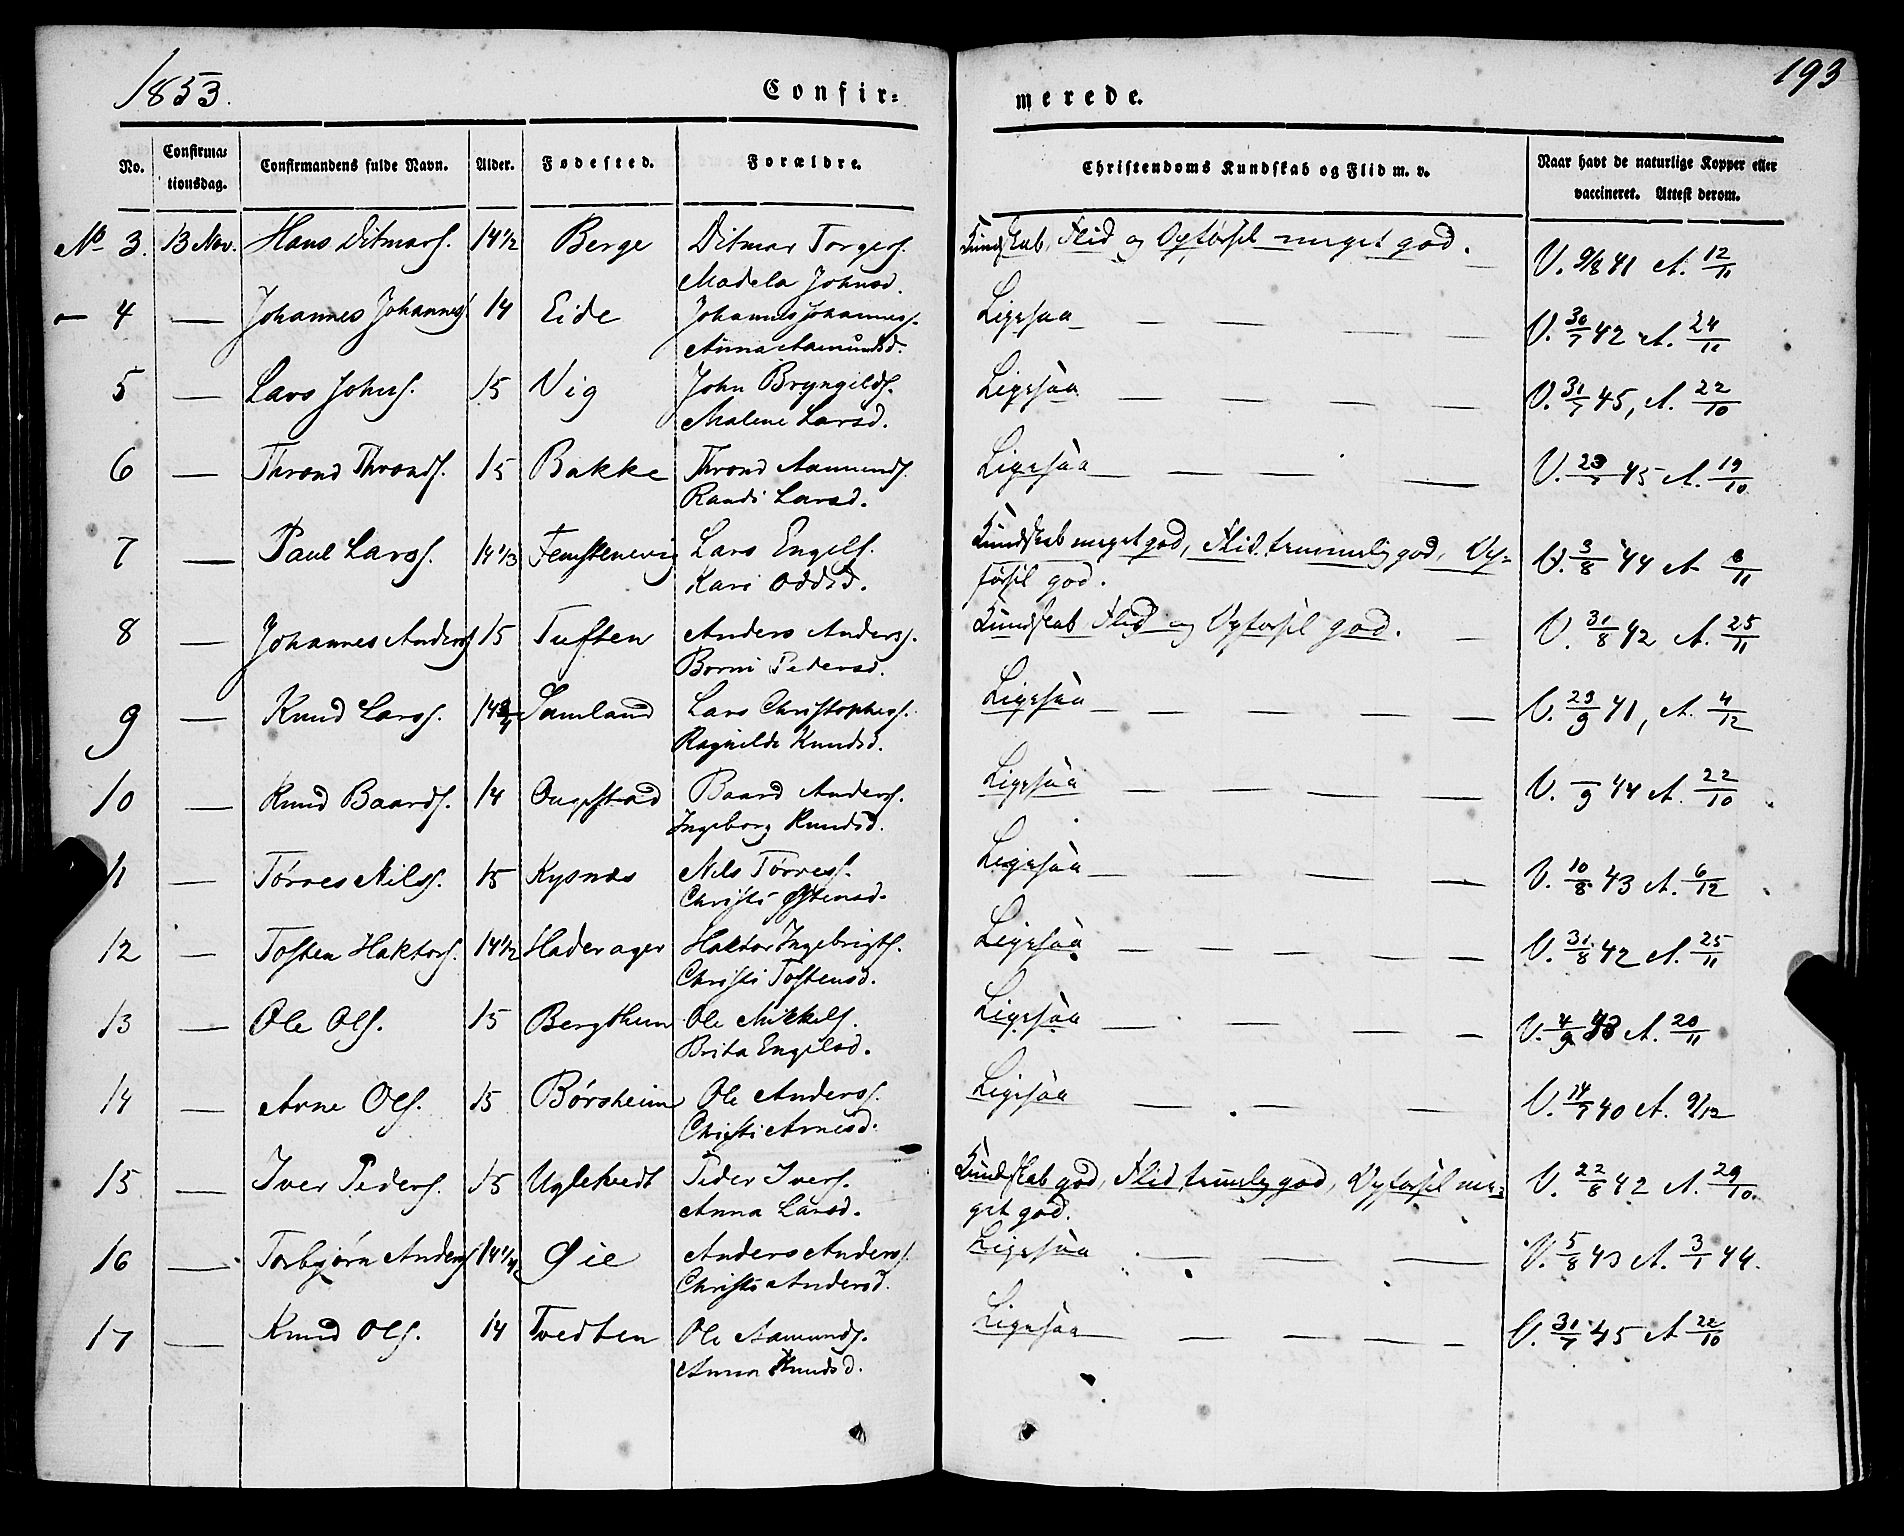 1853.
Confir=
merede.
193
No.
Confirma=
tionsdag.
Confirmandens fulde Navn.
Alder.
Fødested.
Forældre.
Christendoms Kundskab og Flid m. v.
Naar havt de naturlige Kopper eller
vaccineret. Attest derom.
No 3. 13 Nov. Hans Ditmars. 14 1/2 Berge Ditmar Torgers. Kundskab, Flid og Opførsel meget god. V. 9/8 41 A. 12/11
Madela Johnsd.
– 4 — Johannes Johannes. 14 Eide Johannes Johannes. Ligesaa — — — — V. 30/7 42 A. 24/11
Anna Aamundsd.
5 — Lars Johns. 15 Vig John Bryngilds. Ligesaa — — — — V. 31/7 45, A. 22/10
Malene Larsd.
6 — Thrond Thronds. 15 Bakke Thrond Aamunds. Ligesaa — — — — V. 23/7 45 A. 19/10
Randi Larsd.
7 — Paul Larss. 14 1/3 Femstenevig Lars Engels. Kundskab meget god, Flid temmelig god, Op=
Kari Oddsd. førsel god. V. 3/8 44 A 8/11
8 — Johannes Anders 15 Tuften Anders Anderss. Kundskab Flid og Opførsel god. — V. 31/8 42 A. 25/11
Borni Pedersd.
9 — Knud Larss. 14 3/4 Samland Lars Christophers. Ligesaa — — — — V. 23/9 41, A. 4/12
Ragnilde Knudsd.
10 — Knud Baards. 14 Augestad Baard Anders. Ligesaa — — — — V. –/9 44 A. 22/10
Ingeborg Knudsd.
11 — Tørres Nilss. 15 Kysnæs Nils Tørress. Ligesaa — — — — V. 10/8 43 A. 6/12
Christi Østensd.
12 — Tosten Haktors. 14 1/2 Haderager Haktor Ingebrigts. Ligesaa — — — — V. 31/8 42 A. 25/11
Christi Tostensd.
13 — Ole Ols. 15 Bergthun Ole Mikkels. Ligesaa — — — — V. 4/9 43 A. 20/11
Brita Engelsd.
14 — Arne Ols. 15 Børsheim Ole Anderss. Ligesaa — — — V. 14/7 40 A. 9/12
Christi Arnesd.
15 — Iver Peders. 15 Uglekvedt Peder Ivers. Kundskab god, Flid temelig god, Opførsel me= V. 22/8 42 A. 29/10
Anna Larsd. get god.
16 — Torbjørn Anders 14 1/4 Øie Anders Anderss. Ligesaa — — — — V. 5/8 43 A. 3/1 44.
Christi Andersd.
17 — Knud Ols. 14 Tvedten Ole Aamunds. Ligesaa — — — — V. 31/7 45 A 22/10
Anna Knudsd.